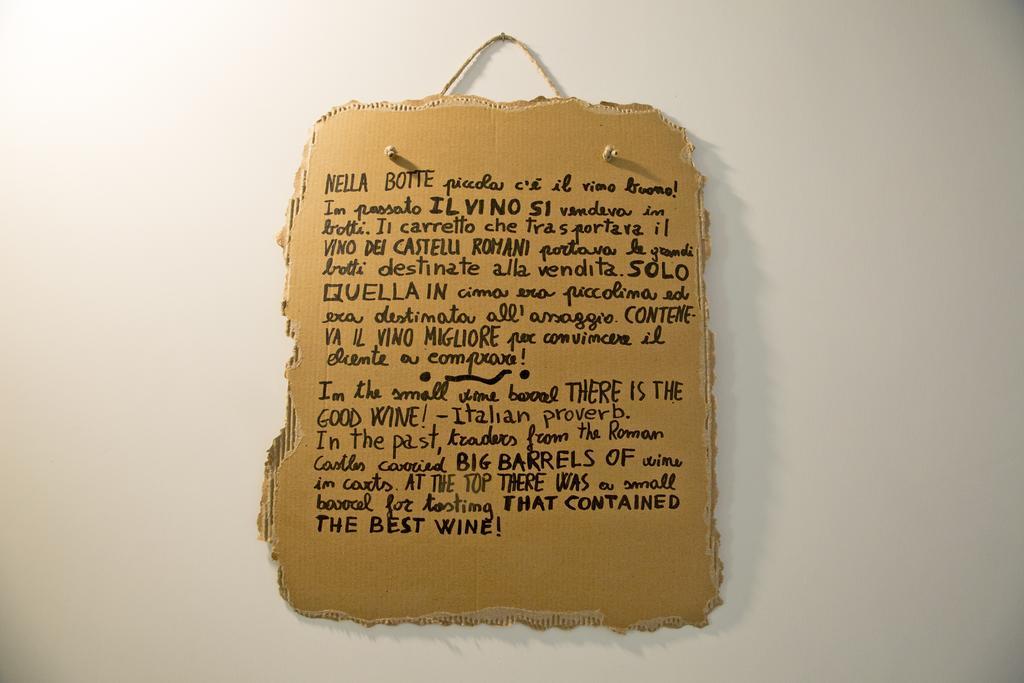 NELLA BOTTE piccola c'è il vino buono!
In passato IL VINO SI vendeva in
botti. Il carretto che trasportava il
VINO DEI CASTELLI ROMANI portava le grandi
botti destinate alla vendita. SOLO
QUELLA IN cima era piccolina ed
era destinata all'assaggio. CONTENE-
VA IL VINO MIGLIORE per convincere il
cliente a comprare!
In the small wine barrel THERE IS THE
GOOD WINE! - Italian proverb.
In the past, traders from the Roman
Castles carried BIG BARRELS OF wine
in carts. AT THE TOP THERE WAS a small
barrel for tasting THAT CONTAINED
THE BEST WINE!